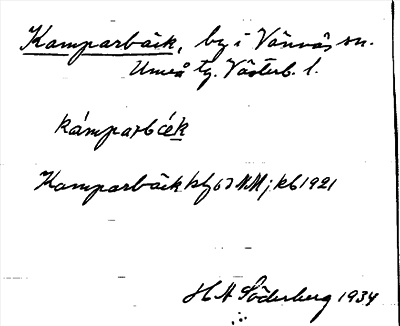 Kamparbäck, by i Vännäs sn.
Umeå tg. Västerb. l.
kámparbäk
Kamparbäck kbg 63 NM; kb 1921
H A Söderberg 1934